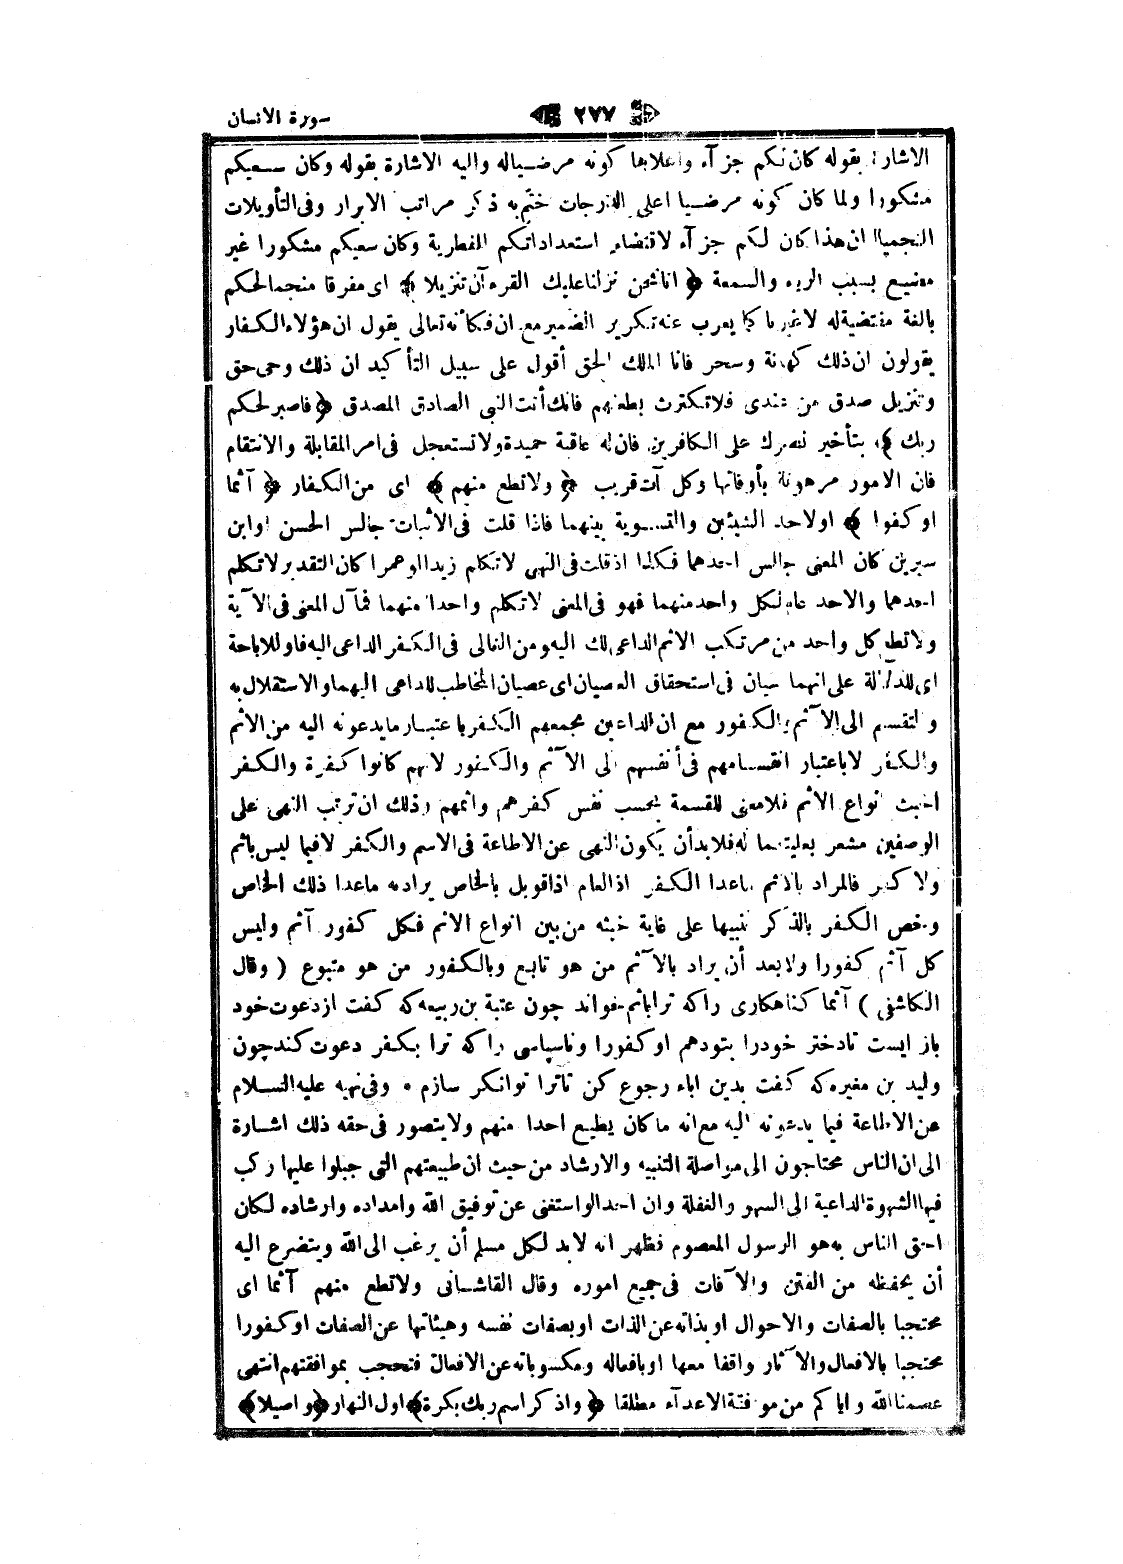 سورة الانسان
٢٧٧
الاشارة بقوله كان لكم جزآء واعلاها كونه مرضياله واليه الاشارة بقوله وكان سعيكم
مشكورا ولما كان كونه مرضيا اعلى الدرجات ختم به ذكر مراتب الابرار وفى التأويلات
النجمية ان هذا كان لكم جزآء لاقتضاء استعداداتكم الفطرية وكان سعيكم مشكورا غير
مضيع بسبب الرياء والسمعة ﴿ انا نحن نزلنا عليك القرءآن تنزيلا ﴾ اى مفرقا منجما لحكم
بالغة مقتضية له لاغيرنا كما يعرب عنه تكرير الضمير مع ان فكأنه تعالى يقول ان هؤلاء الكفار
يقولون ان ذلك كهانة وسحر فانا الملك الحق أقول على سبيل التأكيد ان ذلك وحى حق
وتنزيل صدق من عندى فلاتكترث بطعنهم فانك أنت النبى الصادق المصدق ﴿ فاصبر لحكم
ربك ﴾ بتأخير نصرك على الكافرين فان له عاقبة حميدة ولاتستعجل فى امر المقابلة والانتقام
فان الامور مرهونة بأوقاتها وكل آت قريب ﴿ ولاتطع منهم ﴾ اى من الكفار ﴿ آثما
او كفورا ﴾ او لاحد الشيئين والتسوية بينهما فاذا قلت فى الاثبات جالس الحسن اوابن
سيرين كان المعنى جالس احدهما فكذا اذا قلت فى النهى لاتكلم زيدا اوعمرا كان التقدير لاتكلم
احدهما والاحد عام لكل واحد منهما فهو فى المعنى لاتكلم واحدا منهما فمآل المعنى فى الآية
ولاتطع كل واحد من مرتكب الاثم الداعى لك اليه ومن الغالى فى الكفر الداعى اليه فاو للاباحة
اى للدلالة على انهما سيان فى استحقاق العصيان اى عصيان المخاطب للداعى اليهما والاستقلال به
والتقسيم الى الآثم والكفور مع ان الداعين يجمعهم الكفر باعتبار مايدعونه اليه من الاثم
والكفر لاباعتبار انقسامهم فى أنفسهم الى الآثم والكفور لانهم كانوا كفرة والكفر
اخبث انواع الاثم فلامعنى للقسمة بحسب نفس كفرهم واثمهم وذلك ان ترتب النهى على
الوصفين مشعر بعليتهما له فلابد أن يكون النهى عن الاطاعة فى الاسم والكفر لافيما ليس باثم
ولا كفر فالمراد بالاثم ماعدا الكفر اذ العام اذا قوبل بالخاص يراد به ماعدا ذلك الخاص
وخص الكفر بالذكر تنبيها على غاية خبثه من بين انواع الاثم فكل كفور آثم وليس
كل آثم كفورا ولابعد أن يراد بالآثم من هو تابع وبالكفور من هو متبوع ( وقال
الكاشفى ) آثما كناهكارى راكه ترا باثم خواند چون عتبة بن ربيعه كه كفت ازدعوت خود
باز ايست تادختر خودرا بتودهم او كفورا وناسپاسى راكه ترا بكفر دعوت كند چون
وليد بن مغيره كه كفت بدين اباء رجوع كن تاترا توانكر سازم * وفى نهيه عليه السلام
عن الاطاعة فيما يدعونه اليه مع انه ما كان يطيع احدا منهم ولايتصور فى حقه ذلك اشارة
الى ان الناس محتاجون الى مواصلة التنبيه والارشاد من حيث ان طبيعتهم التى جبلوا عليها ركب
فيها الشهوة الداعية الى السهو والغفلة وان احدا لواستغنى عن توفيق الله وامداده وارشاده لكان
احق الناس به هو الرسول المعصوم فظهر انه لابد لكل مسلم أن يرغب الى الله ويتضرع اليه
أن يحفظه من الفتن والآفات فى جميع اموره وقال القاشانى ولاتطع منهم آثما اى
محتجبا بالصفات والاحوال اوبذاته عن الذات اوبصفات نفسه وهيئاتها عن الصفات او كفورا
محتجبا بالافعال والآثار واقفا معها اوبافعاله ومكسوباته عن الافعال فتحجب بموافقتهم انتهى
عصمنا الله واياكم من موافقة الاعدآء مطلقا ﴿ واذكر اسم ربك بكرة ﴾ اول النهار ﴿ واصيلا ﴾